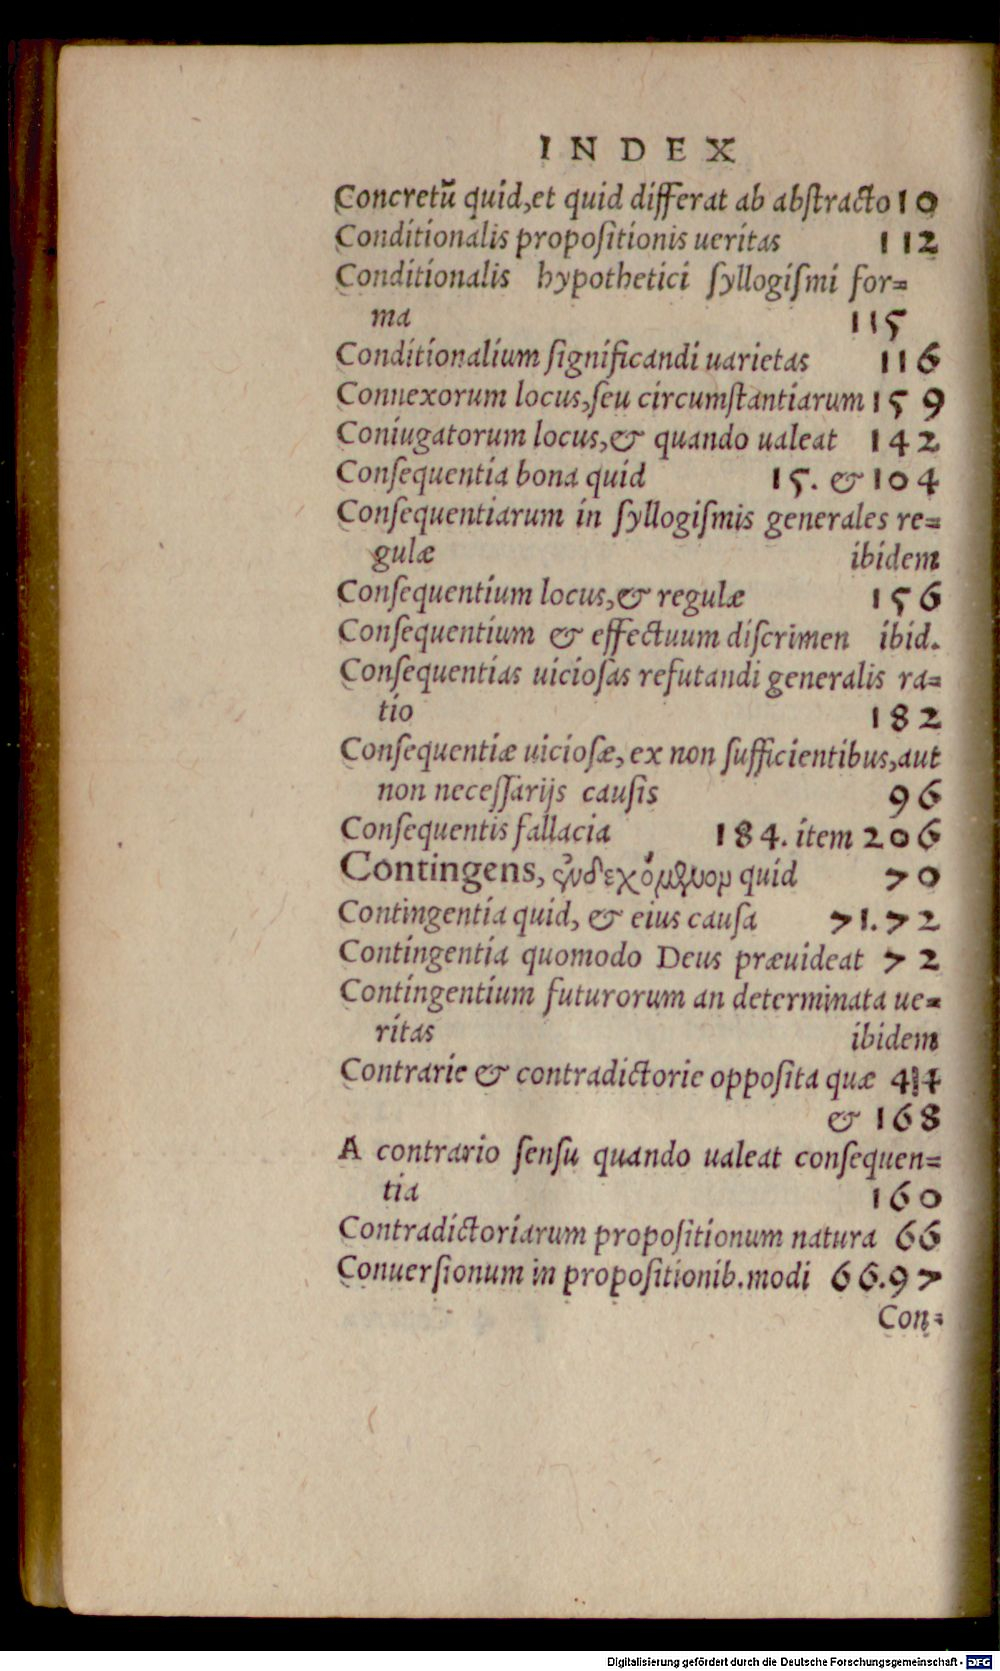 INDEX
Concretũ quid, et quid differat ab abstracto 10
Conditionalis propositionis ueritas 112
Conditionalis hypothetici syllogismi for=
ma 115
Conditionalium significandi uarietas 116
Connexorum locus, seu circumstantiarum 159
Coniugatorum locus, & quando ualeat 142
Consequentia bona quid 15. & 104
Consequentiarum in syllogismis generales re=
gulæ ibidem
Consequentium locus, & regulæ 156
Consequentium & effectuum discrimen ibid.
Consequentias uiciosas refutandi generalis ra=
tio 182
Consequentiæ uiciosæ, ex non sufficientibus, aut
non necessarijs causis 96
Consequentis fallacia 184. item 206
Contingens, ἐνδεχόμενον quid 70
Contingentia quid, & eius causa 71.72
Contingentia quomodo Deus præuideat 72
Contingentium futurorum an determinata ue=
ritas ibidem
Contrarie & contradictorie opposita quæ 44
& 168
A contrario sensu quando ualeat consequen=
tia 160
Contradictoriarum propositionum natura 66
Conuersionum in propositionib. modi 66.97
Con=
Digitalisierung gefördert durch die Deutsche Forschungsgemeinschaft - DFG